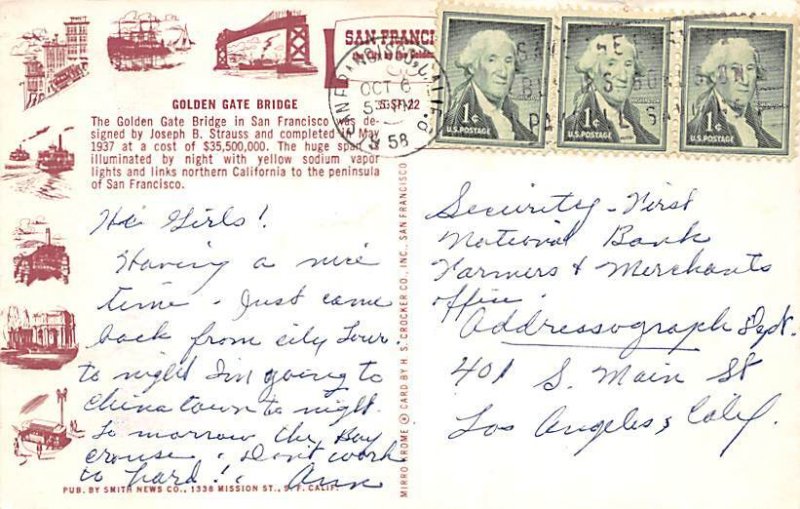 SAN FRANCI
OCT 6
58
1¢
U.S. POSTAGE
1¢
U.S. POSTAGE
1¢
U.S. POSTAGE
GOLDEN GATE BRIDGE
The Golden Gate Bridge in San Francisco was de-
signed by Joseph B. Strauss and completed in May
1937 at a cost of $35,500,000. The huge span is
illuminated by night with yellow sodium vapor
lights and links northern California to the peninsula
of San Francisco.
Hi Girls!
Having a nice
time. Just came
back from city Tour.
to night I'm going to
China town to night.
To morrow the Bay
crouse. Don't work
to hard! Ann
PUB. BY SMITH NEWS CO., 1338 MISSION ST., S. F. CALIF.
MIRRO KROME ® CARD BY H. S. CROCKER CO., INC., SAN FRANCISCO
Security - First
National Bank
Farmers & Merchants
office.
Addressograph Dept.
401 S. Main St
Los Angeles, Calif.